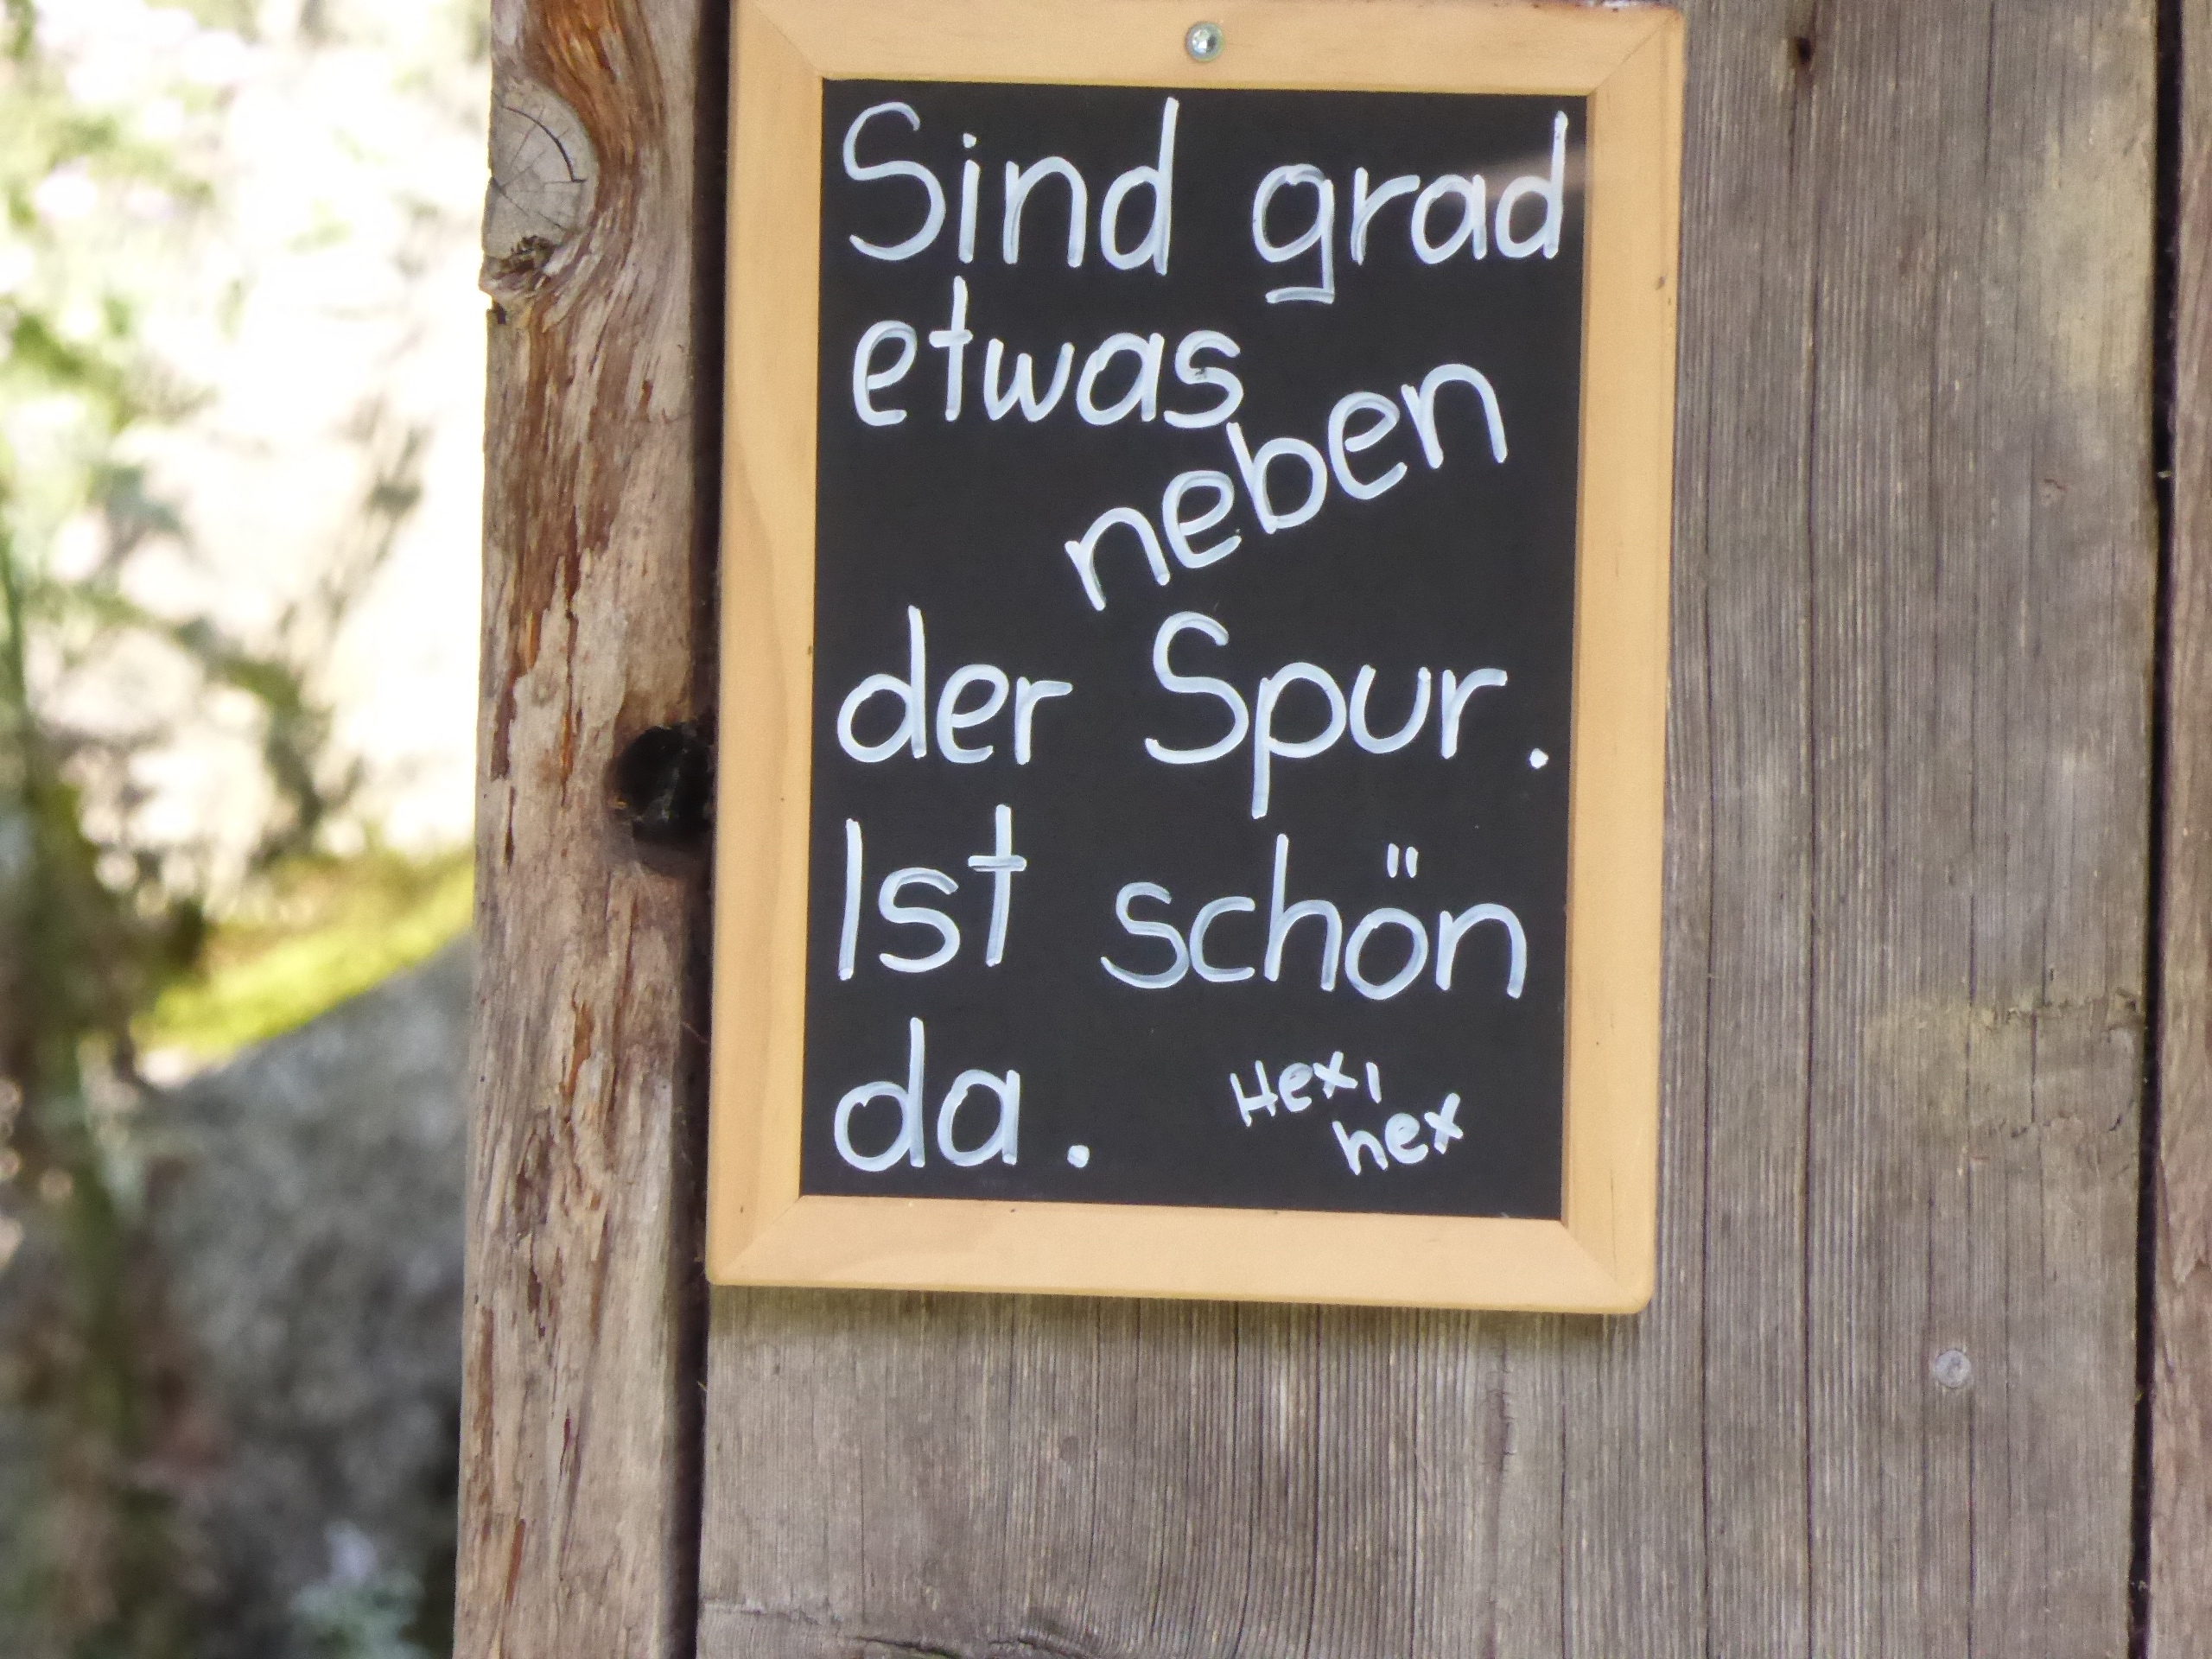 Sind grad
etwas
neben
der Spur.
Ist schön
da.
Hexi
hex